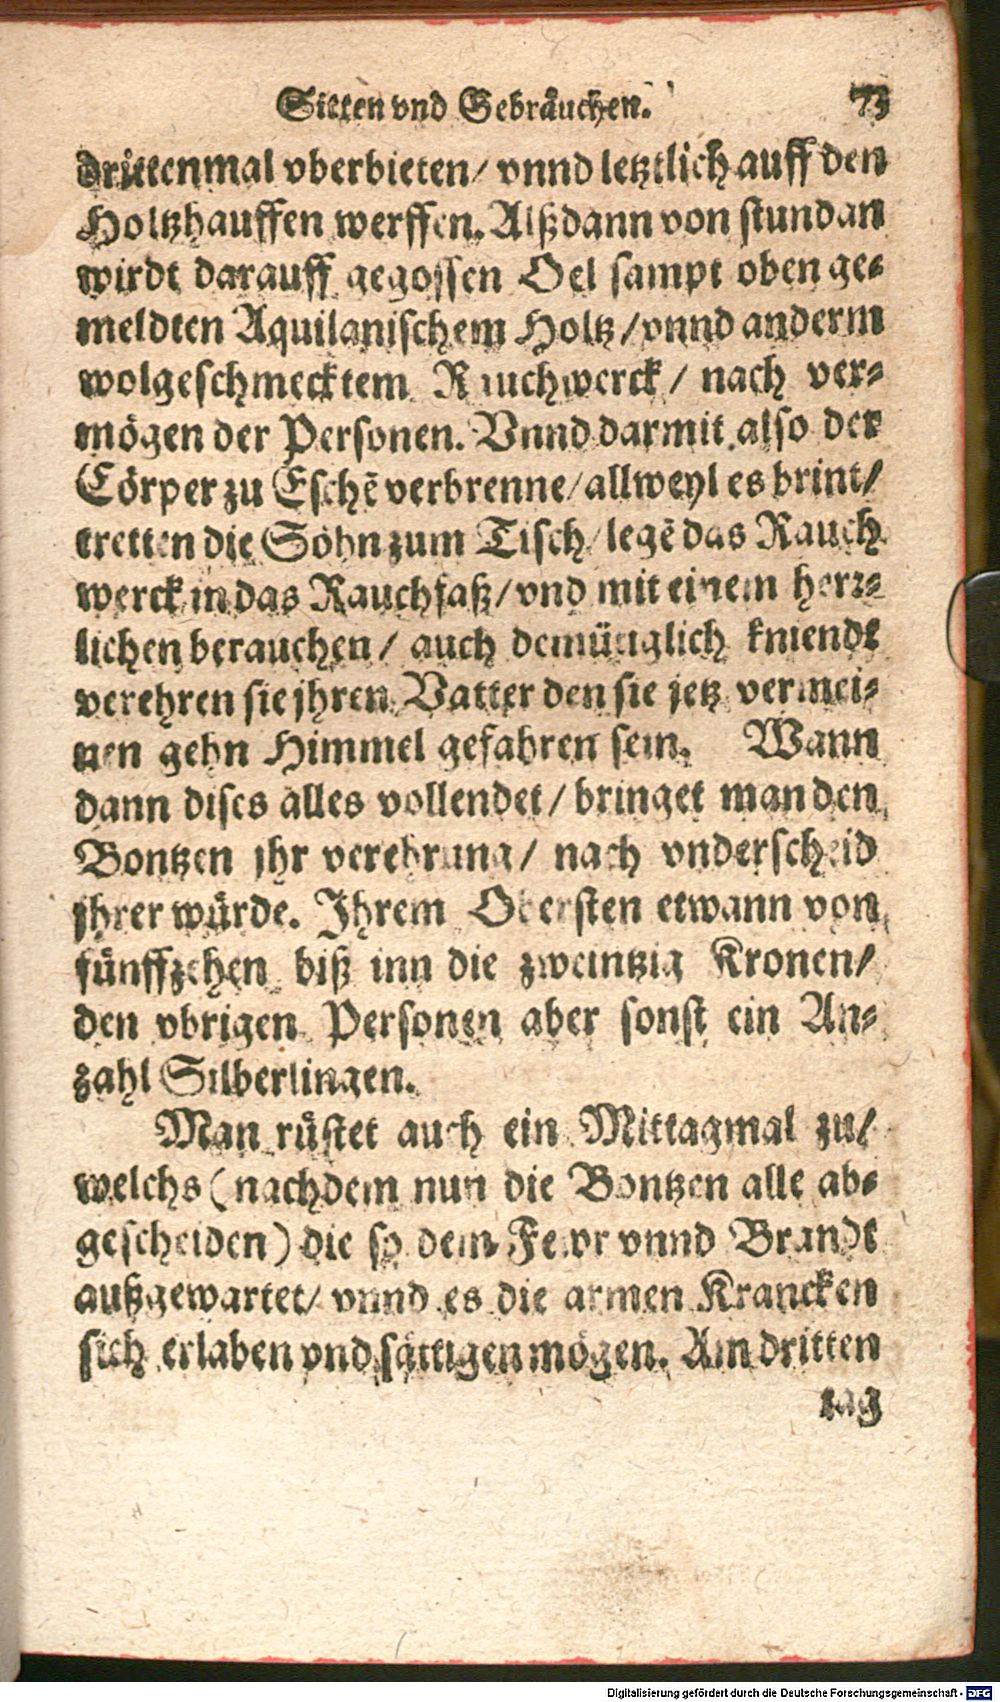 Sitten vnd Gebräuchen. 73
drittenmal vberbieten/ vnnd letztlich auff den
Holtzhauffen werffen. Alßdann von stundan
wirdt darauff gegossen Oel sampt oben ge-
meldten Aquilanischem Holtz/ vnnd anderm
wolgeschmecktem Rauchwerck/ nach ver-
mögen der Personen. Vnnd darmit also der
Cörper zu Eschē verbrenne/ allweyl es brint/
tretten die Söhn zum Tisch/ legē das Rauch
werck in das Rauchfaß/ vnd mit einem herz-
lichen berauchen/ auch demütiglich kniendt
verehren sie jhren Vatter den sie jetz vermei-
nen gehn Himmel gefahren sein. Wann
dann dises alles vollendet/ bringet man den
Bontzen jhr verehrung/ nach vnderscheid
jhrer würde. Ihrem Obersten etwann von
fünffzehen biß inn die zweintzig Kronen/
den vbrigen Personen aber sonst ein An-
zahl Silberlingen.
Man rüstet auch ein Mittagmal zu/
welchs (nachdem nun die Bontzen alle ab-
gescheiden) die so dem Fewr vnnd Brandt
außgewartet/ vnnd es die armen Krancken
sich erlaben vnd sättigen mögen. Am dritten
tag
Digitalisierung gefördert durch die Deutsche Forschungsgemeinschaft - DFG